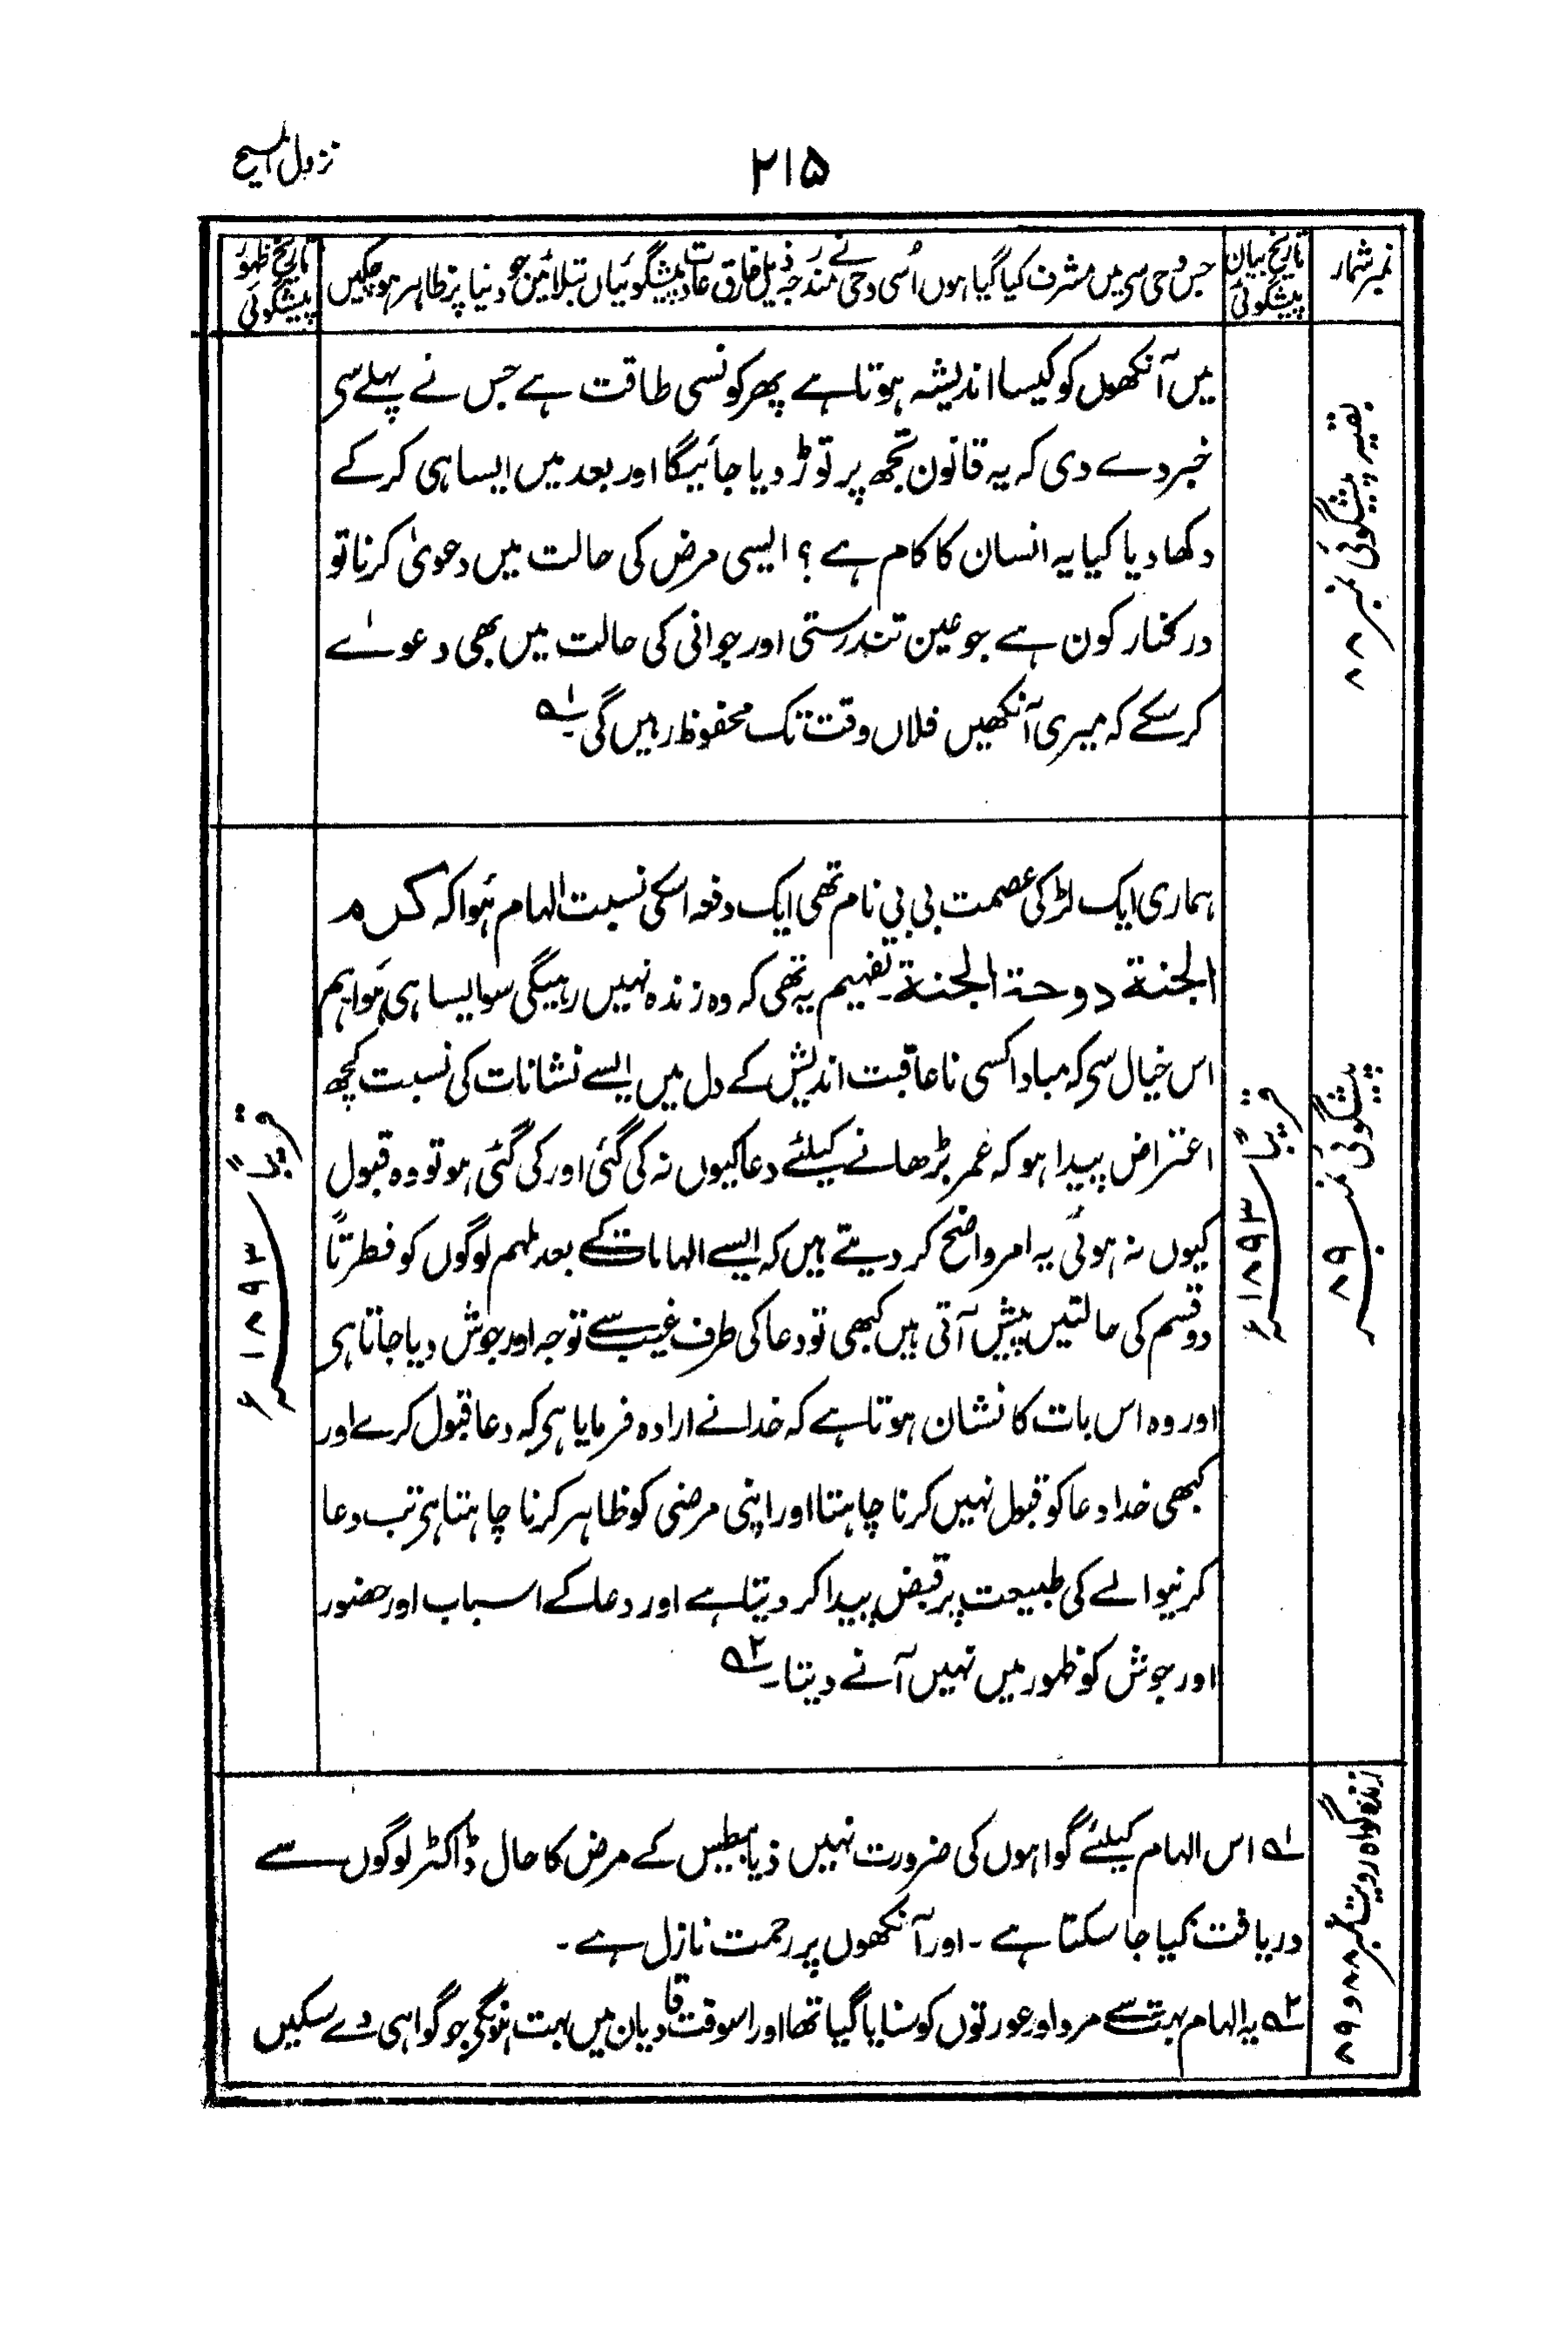 نزول المسیح
۲۱۵
نمبر شمار
تاریخ بیان پیشگوئی
جس وحی سی میں مشرف کیا گیا ہوں اُسی وحی نے مندرجہ ذیل خارق عادت پیشگوئیاں بتلائیں جو دنیا پر ظاہر ہو چکیں
تاریخ ظہور پیشگوئی
بقیہ پیشگوئی نمبر ۸۸
میں آنکھوں کو کیسا اندیشہ ہوتا ہے پھر کونسی طاقت ہے جس نے پہلے سی
خبر دے دی کہ یہ قانون تجھ پر توڑ دیا جائیگا اور بعد میں ایسا ہی کر کے
دکھا دیا کیا یہ انسان کا کام ہے ؟ ایسی مرض کی حالت میں دعویٰ کرنا تو
درکنار کون ہے جو عین تندرستی اور جوانی کی حالت میں بھی دعوےٰ
کر سکے کہ میری آنکھیں فلاں وقت تک محفوظ رہیں گی۔ ؎۱
پیشگوئی نمبر ۸۹
قریباً ۱۸۹۳ء
ہماری ایک لڑکی عصمت بی بی نام تھی ایک دفعہ اسکی نسبت الہام ہؤا کہ کرم
الجنة دوحة الجنة۔ تفہیم یہ تھی کہ وہ زندہ نہیں رہیگی سو ایسا ہی ہؤا ہم
اس خیال سی کہ مبادا کسی ناعاقبت اندیش کے دل میں ایسے نشانات کی نسبت کچھ
اعتراض پیدا ہو کہ عمر بڑھانے کیلئے دعا کیوں نہ کی گئی اور کی گئی ہو تو وہ قبول
کیوں نہ ہوئی یہ امر واضح کر دیتے ہیں کہ ایسے الہامات کے بعد ملہم لوگوں کو فطرتاً
دو قسم کی حالتیں پیش آتی ہیں کبھی تو دعا کی طرف غیب سے توجہ اور جوش دیا جاتا ہی
اور وہ اس بات کا نشان ہوتا ہے کہ خدا نے ارادہ فرمایا ہی کہ دعا قبول کرے اور
کبھی خدا دعا کو قبول نہیں کرنا چاہتا اور اپنی مرضی کو ظاہر کرنا چاہتا ہی تب دعا
کرنیوالے کی طبیعت پر قبض پیدا کر دیتا ہے اور دعا کے اسباب اور حضور
اور جوش کو ظہور میں نہیں آنے دیتا۔ ؎۲
قریباً ۱۸۹۳ء
زندہ گواہ رویت نمبر ۸۸ و ۸۹
؎۱ اس الہام کیلئے گواہوں کی ضرورت نہیں ذیابیطیس کے مرض کا حال ڈاکٹر لوگوں سے
دریافت کیا جا سکتا ہے ۔ اور آنکھوں پر رحمت نازل ہے ۔
؎۲ یہ الہام بہت سے مرد اور عورتوں کو سنایا گیا تھا اور اسوقت قادیان میں بہت ہونگے جو گواہی دے سکیں